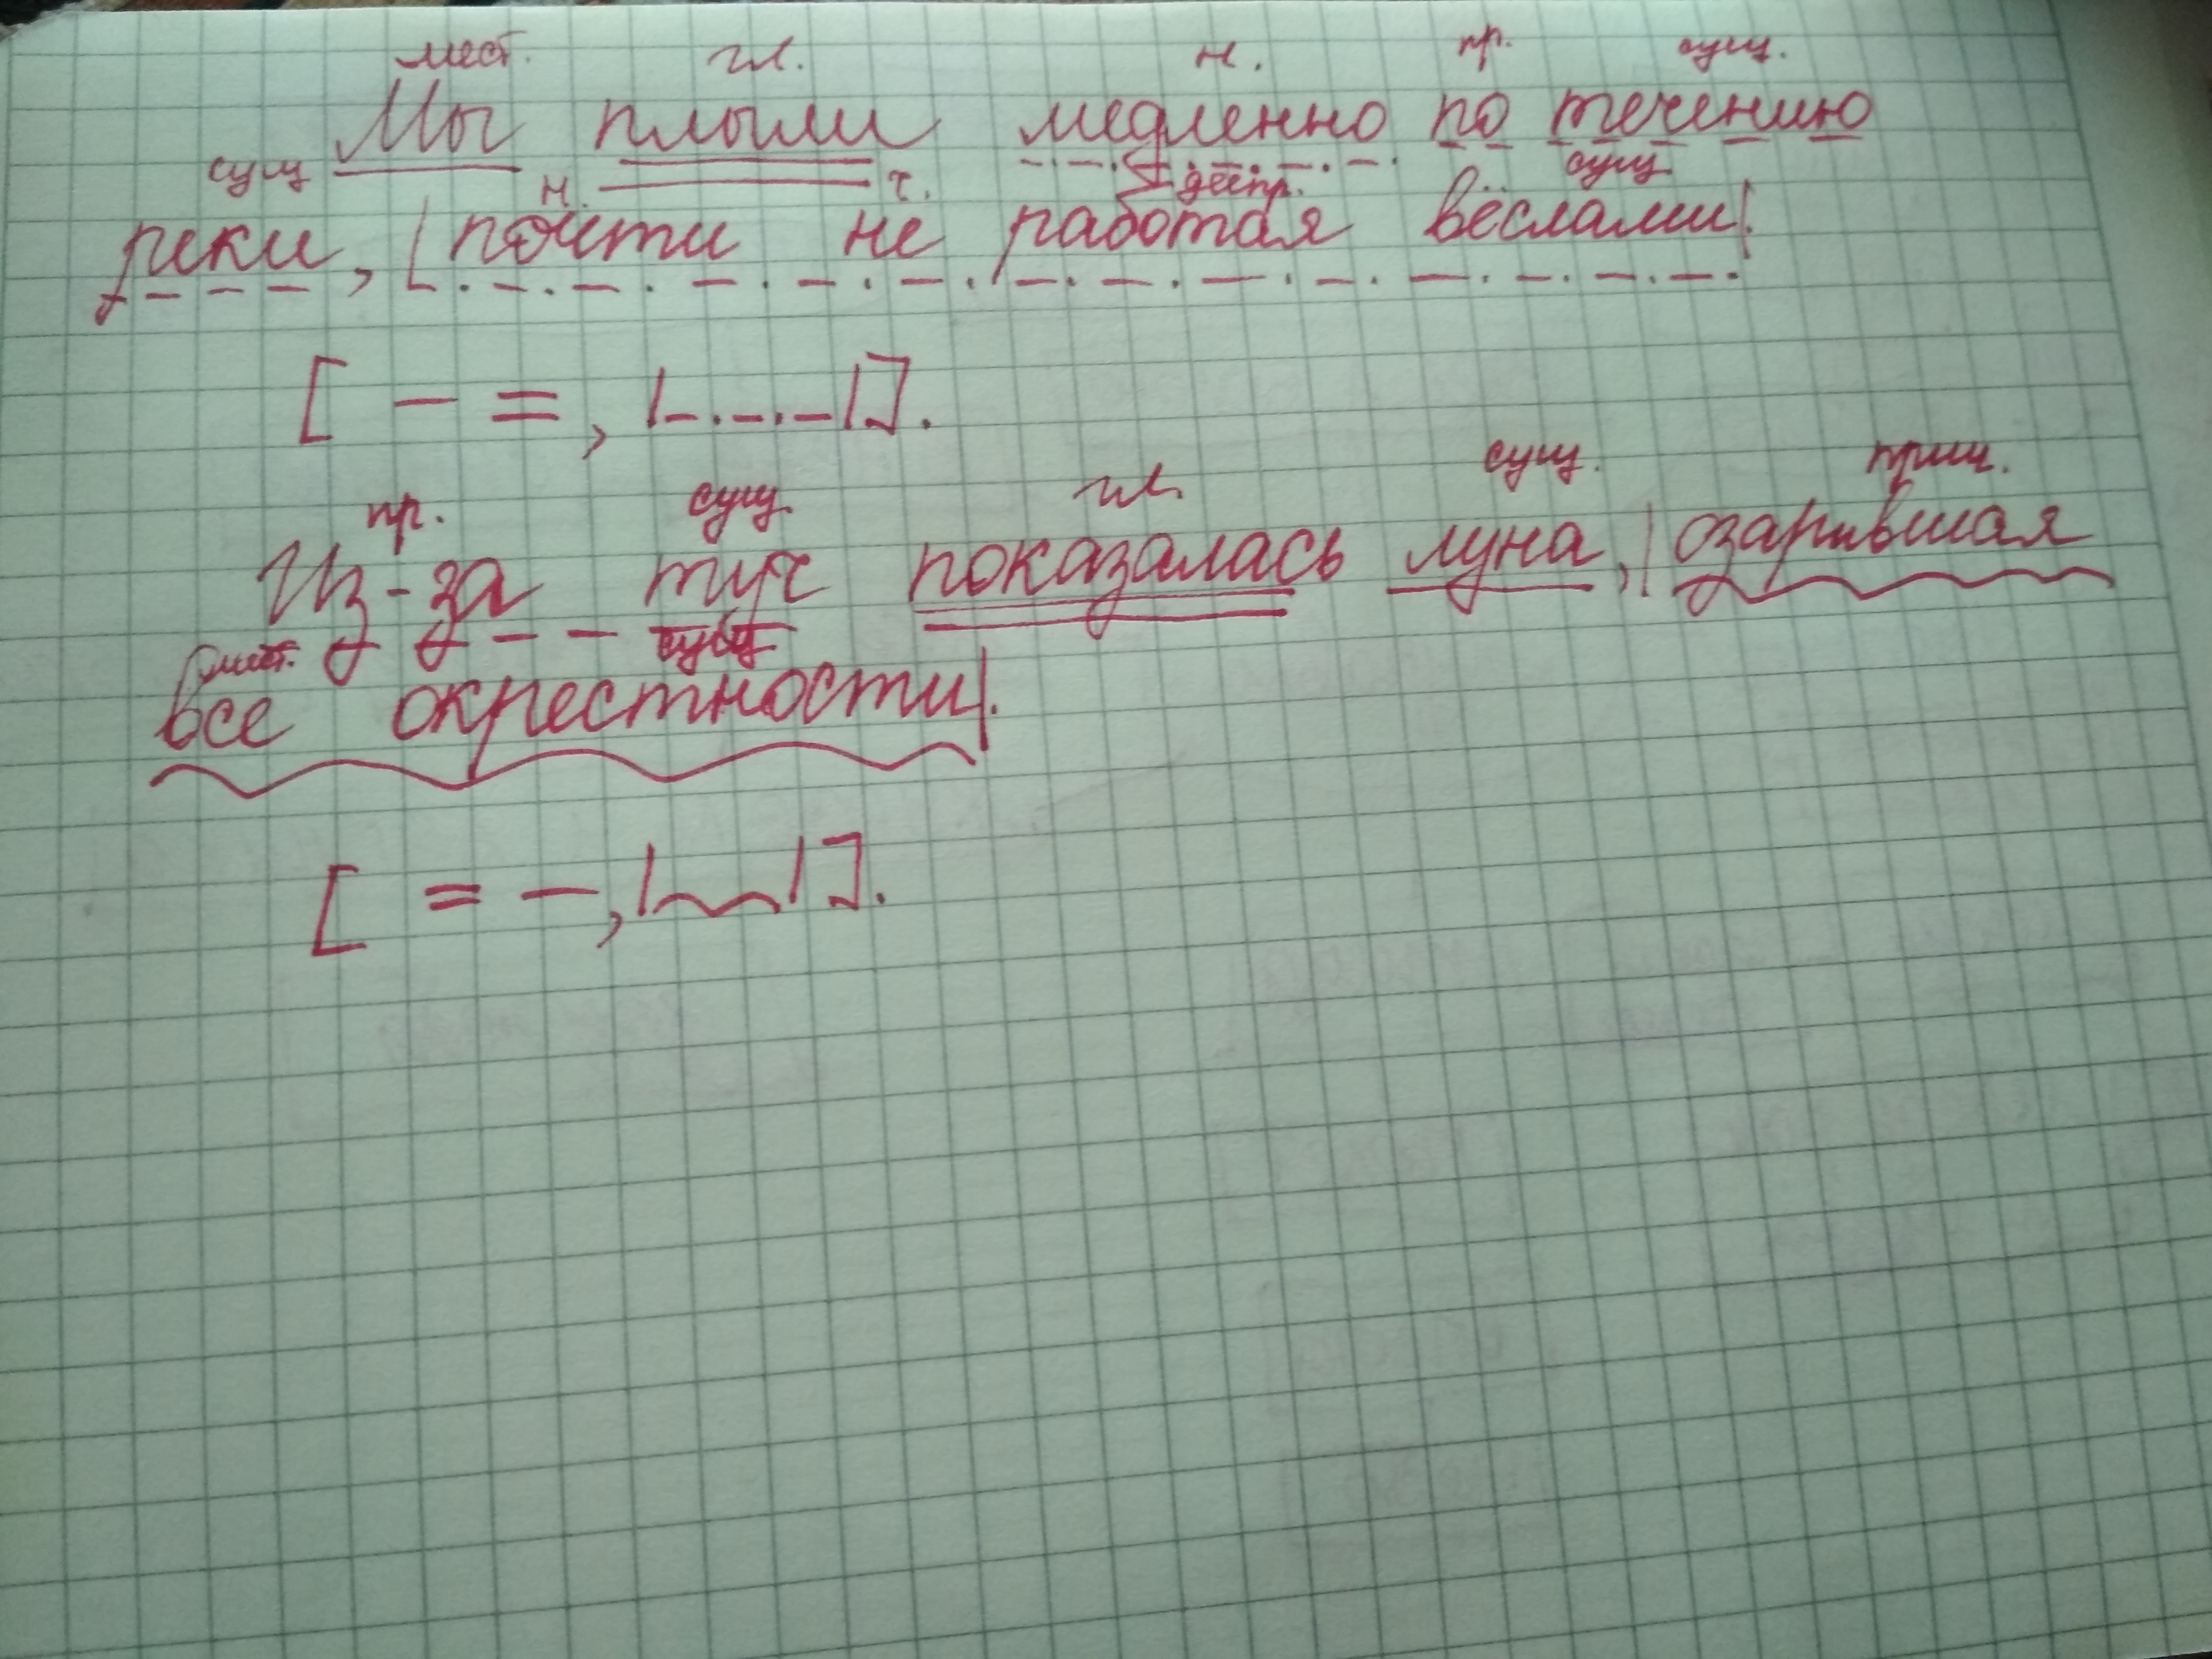 мест. гл. н. пр. сущ.
Мы плыли медленно по течению
сущ н. ч. деепр. сущ
реки, | почти не работая вёслами|.
[ — = , |_._._|].
пр. сущ. гл. сущ. прич.
Из-за туч показалась луна, | озарившая
мест. сущ
все окрестности|.
[ = —, |~~|].